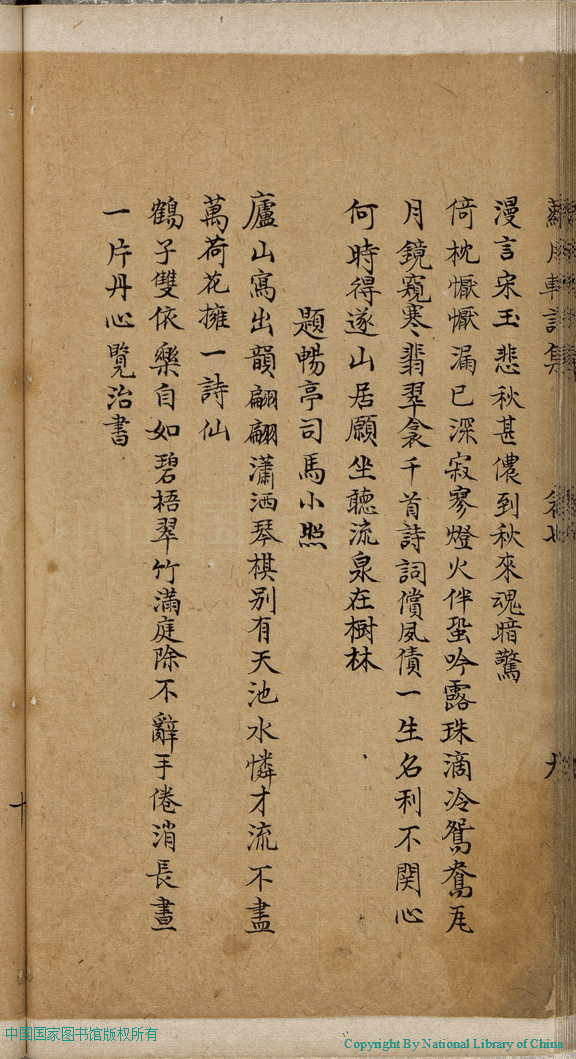 漫言宋玉悲秋甚儂到秋來魂暗驚
倚枕懨懨漏已深寂寥燈火伴蛩吟露珠滴冷鴛鴦瓦
月鏡窺寒翡翠衾千首詩詞償夙債一生名利不関心
何時得遂山居願坐聽流泉在樹林
題暢亭司馬小照
廬山寫出韻翩翩瀟洒琴棋别有天池水憐才流不盡
萬荷花擁一詩仙
鶴子雙依樂自如碧梧翠竹滿庭除不辭手倦消長晝
一片丹心覽治書
十
中国国家图书馆版权所有
Copyright By National Library of China